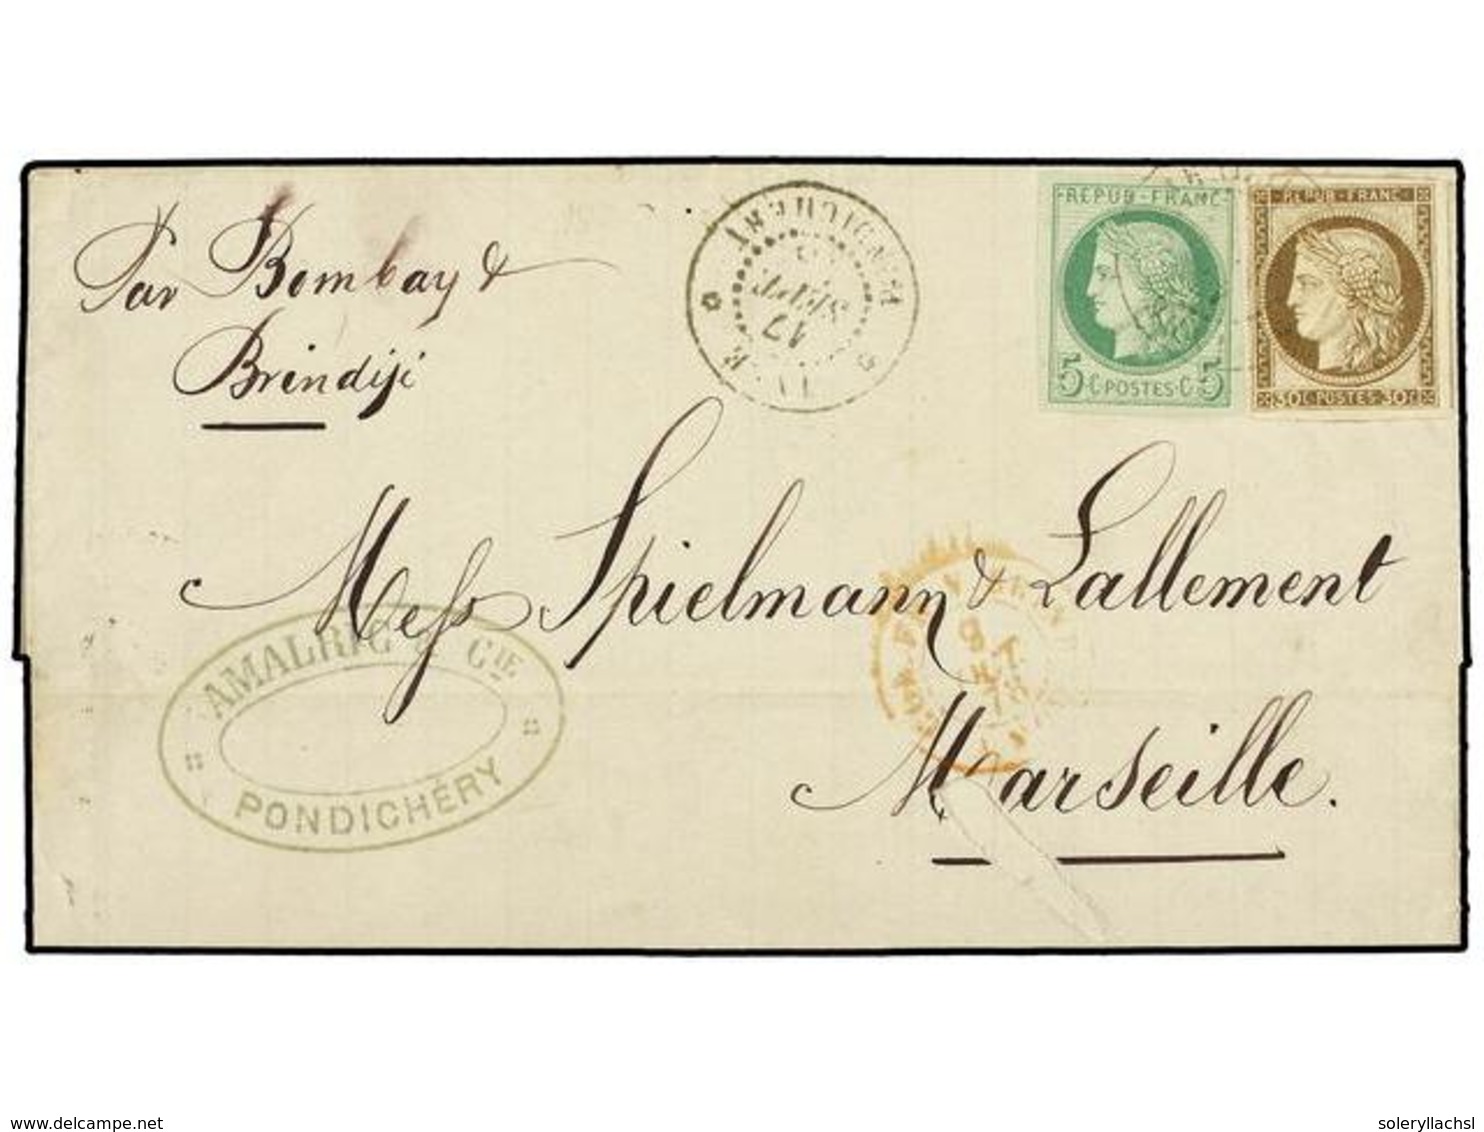 Par Bombay &
Brindisi
PONDICHERY
17
SEPT
REPUB · FRANC
5 C · POSTES · C 5
REPUB · FRANC
30 C · POSTES · 30 C
Mess Spielmann & Lallement
Marseille.
AMALRIC & CIE
PONDICHÉRY
www.delcampe.net
soleryllachsl